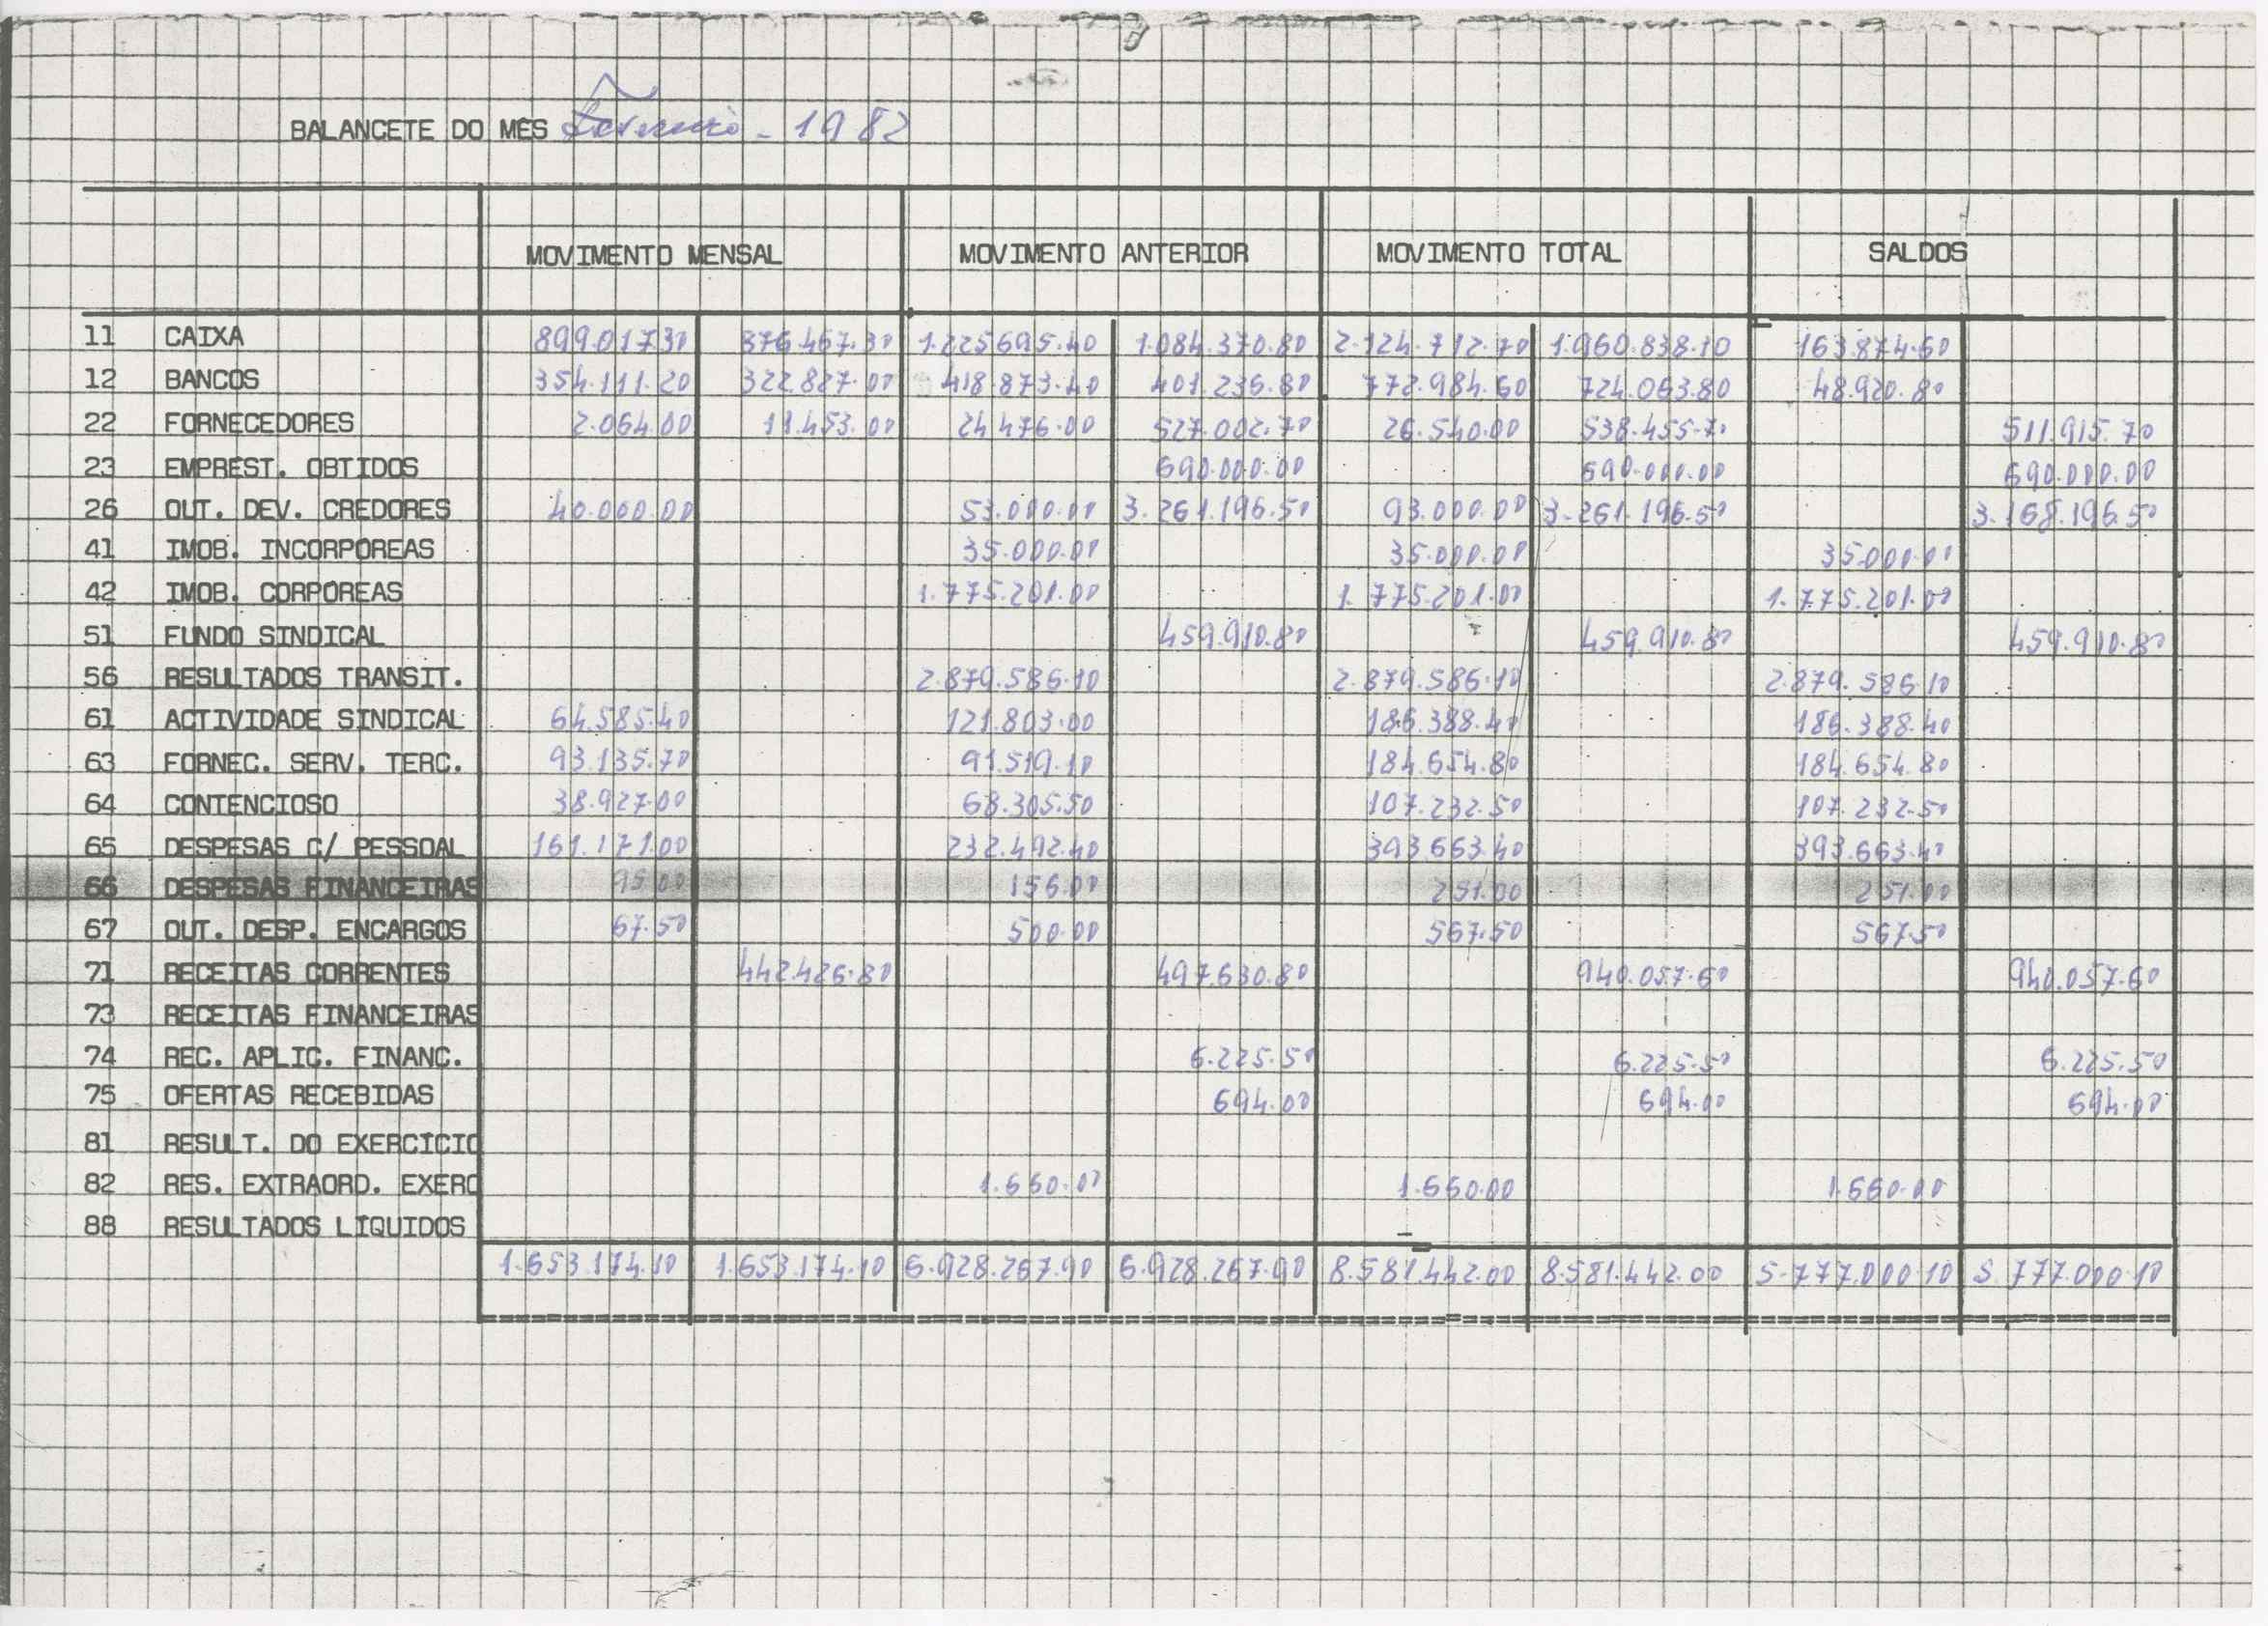 BALANCETE DO MÊS Fevereiro - 1982
MOVIMENTO MENSAL MOVIMENTO ANTERIOR MOVIMENTO TOTAL SALDOS
11 CAIXA 899.017.30 876.467.30 1.225.695.40 1.084.370.80 2.124.712.70 1.960.838.10 163.874.60
12 BANCOS 354.111.20 322.827.00 418.873.40 401.236.80 772.984.60 724.063.80 48.920.80
22 FORNECEDORES 2.064.00 11.453.00 24.476.00 527.002.70 26.540.00 538.455.70 511.915.70
23 EMPRÉST. OBTIDOS 690.000.00 690.000.00 690.000.00
26 OUT. DEV. CREDORES 40.000.00 53.000.00 3.261.196.50 93.000.00 3.261.196.50 3.168.196.50
41 IMOB. INCORPÓREAS 35.000.00 35.000.00 35.000.00
42 IMOB. CORPÓREAS 1.775.201.00 1.775.201.00 1.775.201.00
51 FUNDO SINDICAL 459.910.80 459.910.80 459.910.80
56 RESULTADOS TRANSIT. 2.879.586.10 2.879.586.10 2.879.586.10
61 ACTIVIDADE SINDICAL 64.585.40 121.803.00 186.388.40 186.388.40
63 FORNEC. SERV. TERC. 93.135.70 91.519.10 184.654.80 184.654.80
64 CONTENCIOSO 38.927.00 68.305.50 107.232.50 107.232.50
65 DESPESAS C/ PESSOAL 161.171.00 232.492.40 393.663.40 393.663.40
66 DESPESAS FINANCEIRAS 95.00 156.00 251.00 251.00
67 OUT. DESP. ENCARGOS 67.50 500.00 567.50 567.50
71 RECEITAS CORRENTES 442.426.80 497.630.80 940.057.60 940.057.60
73 RECEITAS FINANCEIRAS
74 REC. APLIC. FINANC. 6.225.50 6.225.50 6.225.50
75 OFERTAS RECEBIDAS 694.00 694.00 694.00
81 RESULT. DO EXERCÍCIO
82 RES. EXTRAORD. EXERC 1.660.00 1.660.00 1.660.00
88 RESULTADOS LÍQUIDOS
1.653.174.10 1.653.174.10 6.928.267.90 6.928.267.90 8.581.442.00 8.581.442.00 5.777.000.10 5.777.000.10